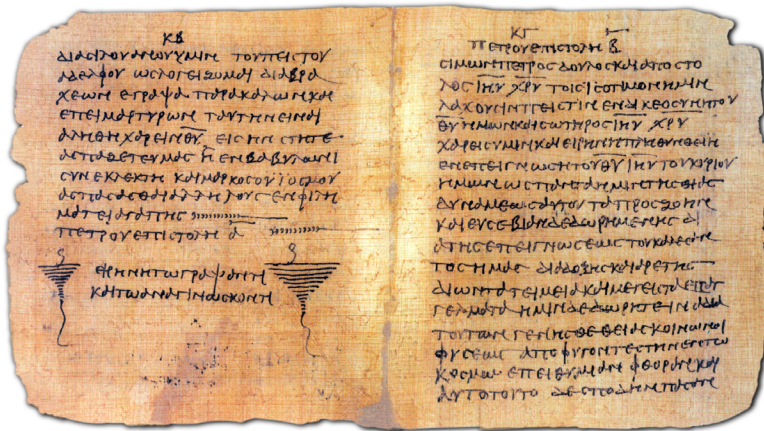 ΚΒ
ΔΙΑ ϹΙΛΟΥΑΝΟΥ ΥΜΙΝ ΤΟΥ ΠΕΙϹΤΟΥ
ΑΔΕΛΦΟΥ ΩϹ ΛΟΓΕΙΖΟΜΑΙ ΔΙΑ ΒΡΑ
ΧΕΩΝ ΕΓΡΑΨΑ ΠΑΡΑΚΑΛΩΝ ΚΑΙ
ΕΠΕΙΜΑΡΤΥΡΩΝ ΤΑΥΤΗΝ ΕΙΝΑΙ
ΑΛΗΘΗ ΧΑΡΕΙΝ ΘΥ ΕΙϹ ΗΝ ϹΤΗΤΕ
ΑϹΠΑΖΕΤΕ ΥΜΑϹ Η ΕΝ ΒΑΒΥΛΩΝΙ
ϹΥΝΕΚΛΕΚΤΗ ΚΑΙ ΜΑΡΚΟϹ Ο ΥΙΟϹ ΜΟΥ
ΑϹΠΑϹΑϹΘΑΙ ΑΛΛΗΛΟΥϹ ΕΝ ΦΙΛΗ
ΜΑΤΕΙ ΑΓΑΠΗϹ
ΠΕΤΡΟΥ ΕΠΙϹΤΟΛΗ Α
ΕΙΡΗΝΗ ΤΩ ΓΡΑΨΑΝΤΙ
ΚΑΙ ΤΩ ΑΝΑΓΙΝΩϹΚΟΝΤΙ
ΚΓ
ΠΕΤΡΟΥ ΕΠΙϹΤΟΛΗ Β
ϹΙΜΩΝ ΠΕΤΡΟϹ ΔΟΥΛΟϹ ΚΑΙ ΑΠΟϹΤΟ
ΛΟϹ ΙΗΥ ΧΡΥ ΤΟΙϹ ΙϹΟΤΙΜΟΝ ΗΜΙΝ
ΛΑΧΟΥϹΙΝ ΠΕΙϹΤΙΝ ΕΝ ΔΙΚΕΟϹΥΝΗ ΤΟΥ
ΘΥ ΗΜΩΝ ΚΑΙ ϹΩΤΗΡΟϹ ΙΗΥ ΧΡΥ
ΧΑΡΕΙϹ ΥΜΙΝ ΚΑΙ ΕΙΡΗΝΗ ΠΛΗΘΥΝΘΕΙΗ
ΕΝ ΕΠΕΙΓΝΩϹΗ ΤΟΥ ΘΥ ΙΗΥ ΤΟΥ ΚΥΡΙΟΥ
ΗΜΩΝ ΩϹ ΠΑΝΤΑ ΗΜΙΝ ΤΗϹ ΘΙΑϹ
ΔΥΝΑΜΕΩϹ ΑΥΤΟΥ ΤΑ ΠΡΟϹ ΖΩΗΝ
ΚΑΙ ΕΥϹΕΒΙΑΝ ΔΕΔΩΡΗΜΕΝΗϹ ΔΙ
Α ΤΗϹ ΕΠΕΙΓΝΩϹΕΩϹ ΤΟΥ ΚΑΛΕϹΑΝ
ΤΟϹ ΗΜΑϹ ΔΙΑ ΔΟΞΗϹ ΚΑΙ ΑΡΕΤΗϹ
ΔΙ ΩΝ ΤΑ ΤΕΙΜΕΙΑ ΚΑΙ ΜΕΓΕΙϹΤΑ ΕΠΑΓ
ΓΕΛΜΑΤΑ ΗΜΙΝ ΔΕΔΩΡΗΤΕ ΙΝΑ ΔΙΑ
ΤΟΥΤΩΝ ΓΕΝΗϹΘΕ ΘΕΙΑϹ ΚΟΙΝΩΝΟΙ
ΦΥϹΕΩϹ ΑΠΟΦΥΓΟΝΤΕϹ ΤΗΝ ΕΝ ΤΩ
ΚΟϹΜΩ ΕΠΕΙΘΥΜΙΑΝ ΦΘΟΡΑϹ ΚΑΙ
ΑΥΤΟ ΤΟΥΤΟ ΔΕ ϹΠΟΥΔΗΝ ΠΑϹΑΝ